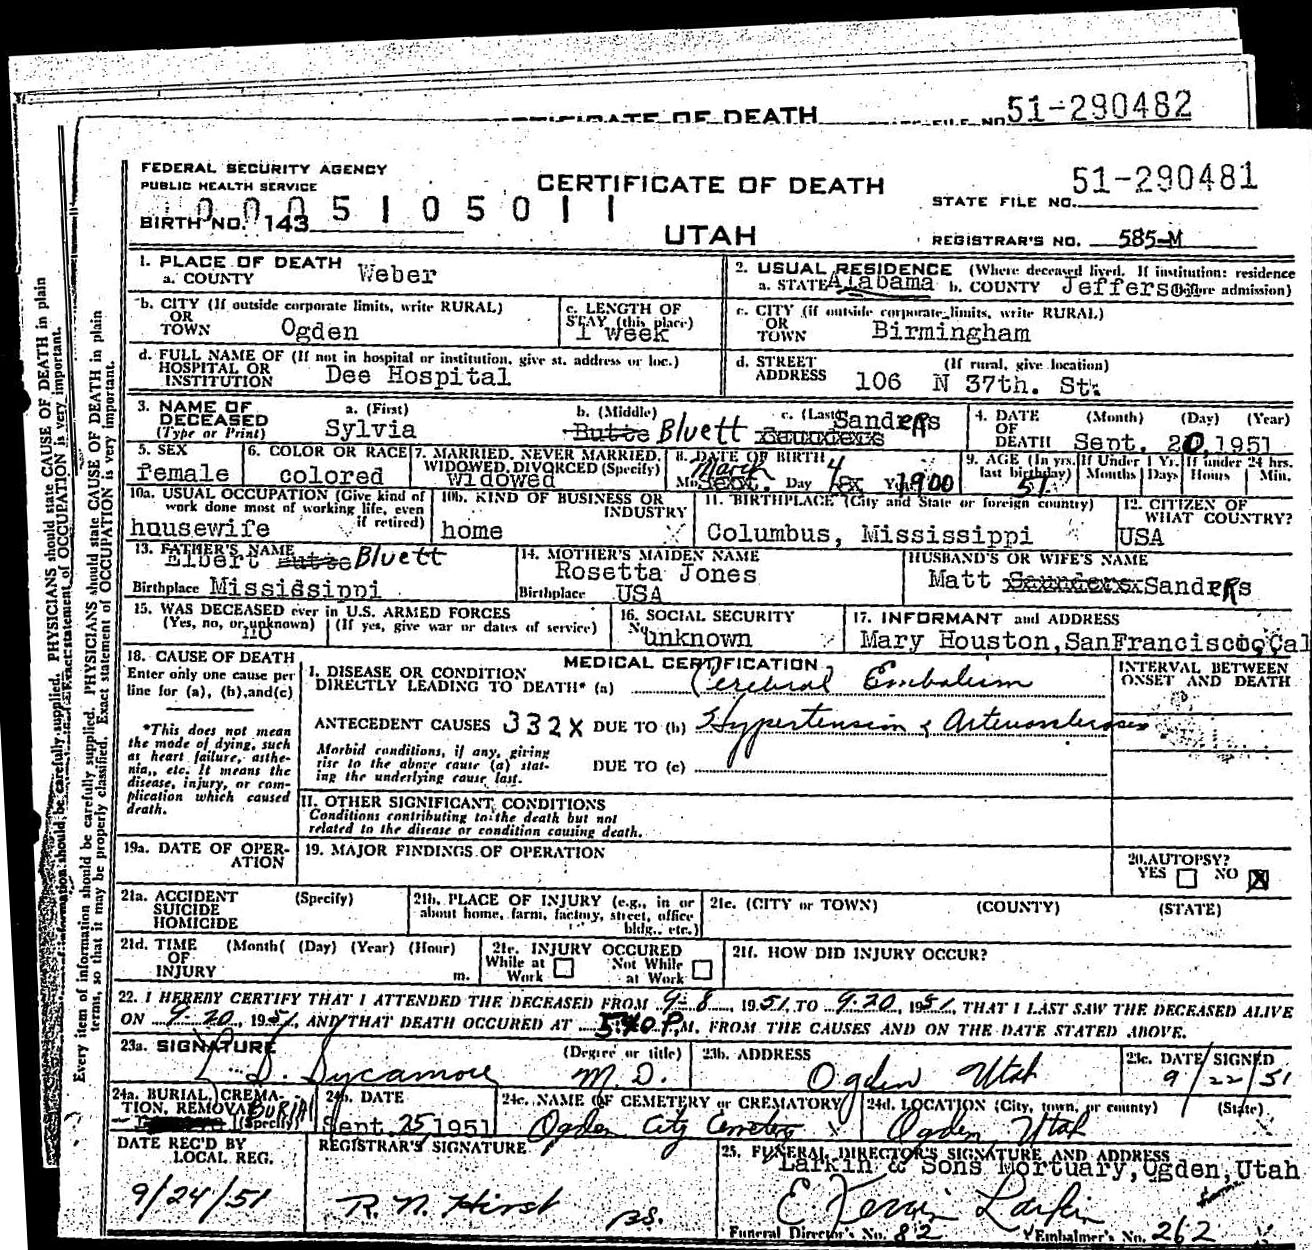 CERTIFICATE OF DEATH
51-290482
FEDERAL SECURITY AGENCY
PUBLIC HEALTH SERVICE
CERTIFICATE OF DEATH
UTAH
51-290481
STATE FILE NO.
BIRTH NO. 143
REGISTRAR'S NO. 585-M
1. PLACE OF DEATH
a. COUNTY Weber
2. USUAL RESIDENCE (Where deceased lived. If institution: residence
a. STATE Alabama b. COUNTY Jefferson before admission)
b. CITY (If outside corporate limits, write RURAL)
OR
TOWN Ogden
c. LENGTH OF
STAY (this place)
1 week
c. CITY (if outside corporate limits, write RURAL)
OR
TOWN Birmingham
d. FULL NAME OF (If not in hospital or institution, give st. address or loc.)
HOSPITAL OR
INSTITUTION Dee Hospital
d. STREET (If rural, give location)
ADDRESS 106 N 37th. St.
3. NAME OF
DECEASED
(Type or Print)
a. (First) Sylvia
b. (Middle) Butts Bluett
c. (Last) Saunders Sanders
4. DATE (Month) (Day) (Year)
OF
DEATH Sept. 20, 1951
5. SEX
female
6. COLOR OR RACE
colored
7. MARRIED, NEVER MARRIED,
WIDOWED, DIVORCED (Specify)
widowed
8. DATE OF BIRTH
March 4
Mo. Sept. Day Yr. 1900
9. AGE (In yrs. last birthday) 51
If Under 1 Yr. Months Days
If under 24 hrs. Hours Min.
10a. USUAL OCCUPATION (Give kind of
work done most of working life, even
if retired)
housewife
10b. KIND OF BUSINESS OR
INDUSTRY
home
11. BIRTHPLACE (City and State or foreign country)
Columbus, Mississippi
12. CITIZEN OF
WHAT COUNTRY?
USA
13. FATHER'S NAME
Elbert Butts Bluett
Birthplace Mississippi
14. MOTHER'S MAIDEN NAME
Rosetta Jones
Birthplace USA
HUSBAND'S OR WIFE'S NAME
Matt Saunders Sanders
15. WAS DECEASED ever in U.S. ARMED FORCES
(Yes, no, or unknown) (If yes, give war or dates of service)
no
16. SOCIAL SECURITY
No. unknown
17. INFORMANT and ADDRESS
Mary Houston, San Francisco, Cal
18. CAUSE OF DEATH
Enter only one cause per
line for (a), (b), and (c)
*This does not mean
the mode of dying, such
as heart failure, asthe-
nia, etc. It means the
disease, injury, or com-
plication which caused
death.
MEDICAL CERTIFICATION
I. DISEASE OR CONDITION
DIRECTLY LEADING TO DEATH* (a) Cerebral Embolism
ANTECEDENT CAUSES 332X DUE TO (b) Hypertension & Arteriosclerosis
Morbid conditions, if any, giving
rise to the above cause (a) stat-
ing the underlying cause last.
DUE TO (c)
INTERVAL BETWEEN
ONSET AND DEATH
II. OTHER SIGNIFICANT CONDITIONS
Conditions contributing to the death but not
related to the disease or condition causing death.
19a. DATE OF OPER-
ATION
19. MAJOR FINDINGS OF OPERATION
20. AUTOPSY?
YES NO X
21a. ACCIDENT (Specify)
SUICIDE
HOMICIDE
21b. PLACE OF INJURY (e.g., in or
about home, farm, factory, street, office
bldg., etc.)
21c. (CITY or TOWN) (COUNTY) (STATE)
21d. TIME (Month( (Day) (Year) (Hour)
OF
INJURY m.
21e. INJURY OCCURED
While at Work Not While at Work
21f. HOW DID INJURY OCCUR?
22. I HEREBY CERTIFY THAT I ATTENDED THE DECEASED FROM 9-8, 1951, TO 9-20, 1951, THAT I LAST SAW THE DECEASED ALIVE
ON 9-20, 1951, AND THAT DEATH OCCURED AT 5:40 P.M, FROM THE CAUSES AND ON THE DATE STATED ABOVE.
23a. SIGNATURE (Degree or title)
D. Sycamore M.D.
23b. ADDRESS
Ogden Utah
23c. DATE SIGNED
9/22/51
24a. BURIAL, CREMA-
TION, REMOVAL
(Specify)
BURIAL
24b. DATE
Sept. 25 1951
24c. NAME OF CEMETERY or CREMATORY
Ogden City Cemetery
24d. LOCATION (City, town, or county) (State)
Ogden, Utah
DATE REC'D BY
LOCAL REG.
9/24/51
REGISTRAR'S SIGNATURE
R. N. Hirst
25. FUNERAL DIRECTOR'S SIGNATURE AND ADDRESS
Larkin & Sons Mortuary, Ogden, Utah
E Larkin
Funeral Director's No. 82 Embalmer's No. 262
Every item of information should be carefully supplied. PHYSICIANS should state CAUSE OF DEATH in plain
terms, so that it may be properly classified. Exact statement of OCCUPATION is very important.